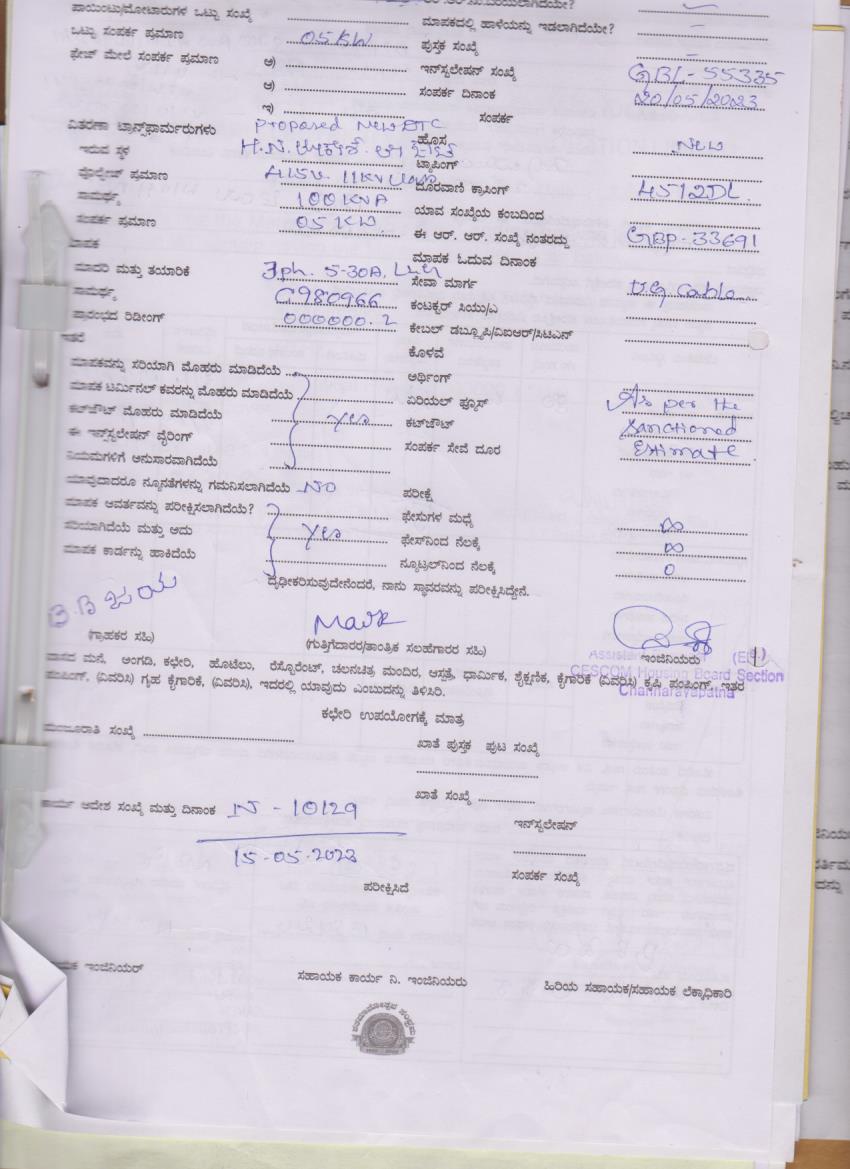 ಪಾಯಿಂಟು/ಮೋಟಾರುಗಳ ಒಟ್ಟು ಸಂಖ್ಯೆ
ಮಾಪಕದಲ್ಲಿ ಹಾಳೆಯನ್ನು ಇಡಲಾಗಿದೆಯೇ? –
ಒಟ್ಟು ಸಂಪರ್ಕ ಪ್ರಮಾಣ 05 KW ಪುಸ್ತಕ ಸಂಖ್ಯೆ –
ಫೇಜ್ ಮೇಲೆ ಸಂಪರ್ಕ ಪ್ರಮಾಣ ಅ) ಇನ್‌ಸ್ಟಲೇಷನ್ ಸಂಖ್ಯೆ GBL-55335
ಆ) ಸಂಪರ್ಕ ದಿನಾಂಕ 20/05/2023
ಇ) ಸಂಪರ್ಕ
ವಿತರಣಾ ಟ್ರಾನ್ಸ್‌ಫಾರ್ಮರುಗಳು Proposed New DTC ಹೊಸ New
ಇರುವ ಸ್ಥಳ H.N. ಟ್ಯಾಪಿಂಗ್
ವೋಲ್ಟೇಜ್ ಪ್ರಮಾಣ 415V. 11KV ದೂರವಾಣಿ ಕ್ರಾಸಿಂಗ್ 4512DL.
ಸಾಮರ್ಥ್ಯ 100 KVA ಯಾವ ಸಂಖ್ಯೆಯ ಕಂಬದಿಂದ
ಸಂಪರ್ಕ ಪ್ರಮಾಣ 05 KW. ಈ ಆರ್. ಆರ್. ಸಂಖ್ಯೆ ನಂತರದ್ದು GBP-33691
ಮಾಪಕ ಮಾಪಕ ಓದುವ ದಿನಾಂಕ
ಮಾದರಿ ಮತ್ತು ತಯಾರಿಕೆ 3ph. 5-30A, ಸೇವಾ ಮಾರ್ಗ U.G Cable
ಸಾಮರ್ಥ್ಯ C980966 ಕಂಟಕ್ಟರ್ ಸಿಯು/ಎ
ಪ್ರಾರಂಭದ ರಿಡೀಂಗ್ 000000.2 ಕೇಬಲ್ ಡಬ್ಲ್ಯೂಪಿ/ವಿಐಆರ್/ಸಿಟಿಎಸ್
ಇತರೆ ಕೊಳವೆ
ಮಾಪಕವನ್ನು ಸರಿಯಾಗಿ ಮೊಹರು ಮಾಡಿದೆಯೆ ಅರ್ಥಿಂಗ್
ಮಾಪಕ ಟರ್ಮಿನಲ್ ಕವರನ್ನು ಮೊಹರು ಮಾಡಿದೆಯೆ ಏರಿಯಲ್ ಫ್ಯೂಸ್ As per the
ಕಟ್‌ಔಟ್ ಮೊಹರು ಮಾಡಿದೆಯೆ Yes ಕಟ್‌ಔಟ್ sanctioned
ಈ ಇನ್‌ಸ್ಟಲೇಷನ್ ವೈರಿಂಗ್ ಸಂಪರ್ಕ ಸೇವೆ ದೂರ Estimate
ನಿಯಮಗಳಿಗೆ ಅನುಸಾರವಾಗಿದೆಯೆ
ಯಾವುದಾದರೂ ನ್ಯೂನತೆಗಳನ್ನು ಗಮನಿಸಲಾಗಿದೆಯೆ NO ಪರೀಕ್ಷೆ
ಮಾಪಕ ಆವರ್ತವನ್ನು ಪರೀಕ್ಷಿಸಲಾಗಿದೆಯೆ? ಫೇಸುಗಳ ಮಧ್ಯೆ ∞
ಸರಿಯಾಗಿದೆಯೆ ಮತ್ತು ಅದು Yes ಫೇಸ್‌ನಿಂದ ನೆಲಕ್ಕೆ ∞
ಮಾಪಕ ಕಾರ್ಡನ್ನು ಹಾಕಿದೆಯೆ ನ್ಯೂಟ್ರಲ್‌ನಿಂದ ನೆಲಕ್ಕೆ 0
ದೃಢೀಕರಿಸುವುದೇನೆಂದರೆ, ನಾನು ಸ್ಥಾವರವನ್ನು ಪರೀಕ್ಷಿಸಿದ್ದೇನೆ.
(ಗ್ರಾಹಕರ ಸಹಿ) (ಗುತ್ತಿಗೆದಾರರ/ತಾಂತ್ರಿಕ ಸಲಹೆಗಾರರ ಸಹಿ) ಇಂಜಿನಿಯರು
CESCOM Housing Board Section
Channarayapatna
ವಾಸದ ಮನೆ, ಅಂಗಡಿ, ಕಛೇರಿ, ಹೊಟೆಲು, ರೆಸ್ಟೋರೆಂಟ್, ಚಲನಚಿತ್ರ ಮಂದಿರ, ಆಸ್ಪತ್ರೆ, ಧಾರ್ಮಿಕ, ಶೈಕ್ಷಣಿಕ, ಕೈಗಾರಿಕೆ (ವಿವರಿಸಿ) ಕೃಷಿ ಪಂಪಿಂಗ್, ಇತರ
ಪಂಪಿಂಗ್, (ವಿವರಿಸಿ) ಗೃಹ ಕೈಗಾರಿಕೆ, (ವಿವರಿಸಿ), ಇದರಲ್ಲಿ ಯಾವುದು ಎಂಬುದನ್ನು ತಿಳಿಸಿರಿ.
ಕಛೇರಿ ಉಪಯೋಗಕ್ಕೆ ಮಾತ್ರ
ಮಂಜೂರಾತಿ ಸಂಖ್ಯೆ ಖಾತೆ ಪುಸ್ತಕ ಪುಟ ಸಂಖ್ಯೆ
ಖಾತೆ ಸಂಖ್ಯೆ
ಕಾರ್ಯ ಆದೇಶ ಸಂಖ್ಯೆ ಮತ್ತು ದಿನಾಂಕ N - 10129 ಇನ್‌ಸ್ಟಲೇಷನ್
15-05-2023
ಸಂಪರ್ಕ ಸಂಖ್ಯೆ
ಪರೀಕ್ಷಿಸಿದೆ
ಇಂಜಿನಿಯರ್ ಸಹಾಯಕ ಕಾರ್ಯ ನಿ. ಇಂಜಿನಿಯರು ಹಿರಿಯ ಸಹಾಯಕ/ಸಹಾಯಕ ಲೆಕ್ಕಾಧಿಕಾರಿ